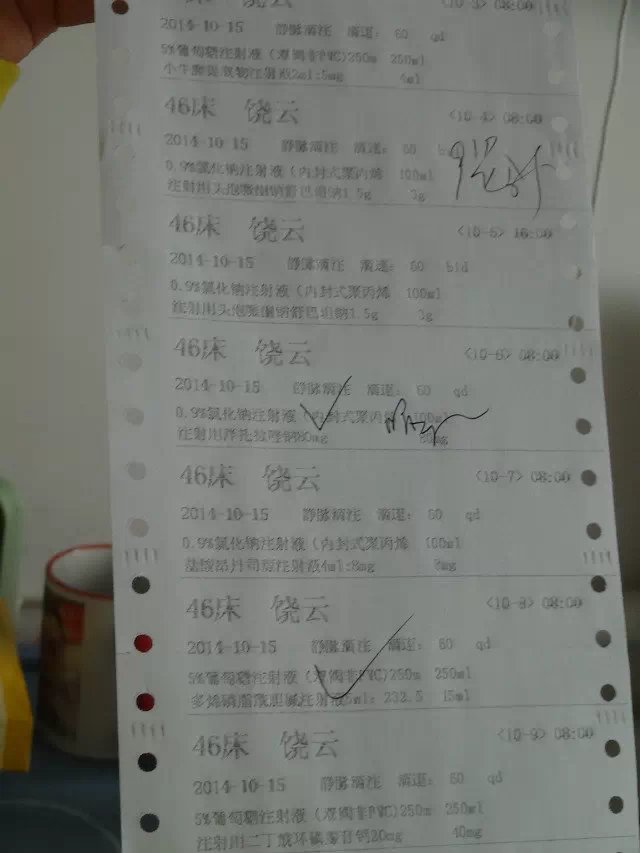 <10-3> 08:00
2014-10-15 静脉滴注 滴速: 60 qd
5%葡萄糖注射液(双阀非PVC)250m 250ml
小牛脾提取物注射液2ml:5mg 4ml
46床 饶云 <10-4> 08:00
2014-10-15 静脉滴注 滴速: 60
0.9%氯化钠注射液(内封式聚丙烯 100ml
注射用头孢哌酮钠舒巴坦钠1.5g 3g
46床 饶云 <10-5> 16:00
2014-10-15 静脉滴注 滴速: 60 bid
0.9%氯化钠注射液(内封式聚丙烯 100ml
注射用头孢哌酮钠舒巴坦钠1.5g 3g
46床 饶云 <10-6> 08:00
2014-10-15 静脉滴注 滴速: 60 qd
0.9%氯化钠注射液(内封式聚丙烯 100ml
注射用泮托拉唑钠80mg
46床 饶云 <10-7> 08:00
2014-10-15 静脉滴注 滴速: 60 qd
0.9%氯化钠注射液(内封式聚丙烯 100ml
盐酸昂丹司琼注射液4ml:8mg 8mg
46床 饶云 <10-8> 08:00
2014-10-15 静脉滴注 滴速: 60 qd
5%葡萄糖注射液(双阀非PVC)250m 250ml
多烯磷脂酰胆碱注射液5ml: 232.5 15ml
46床 饶云 <10-9> 08:00
2014-10-15 静脉滴注 滴速: 60 qd
5%葡萄糖注射液(双阀非PVC)250m 250ml
注射用二丁酰环磷腺苷钙20mg 40mg